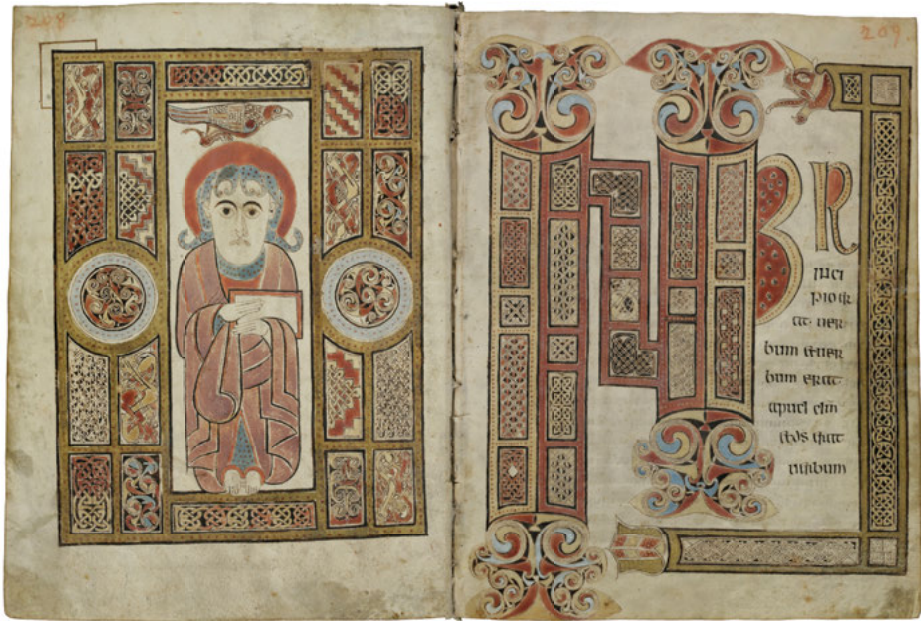 208
209
IN P R
inci
pio er
at uer
bum et uer
bum erat
apud dm
et ds erat
uerbum